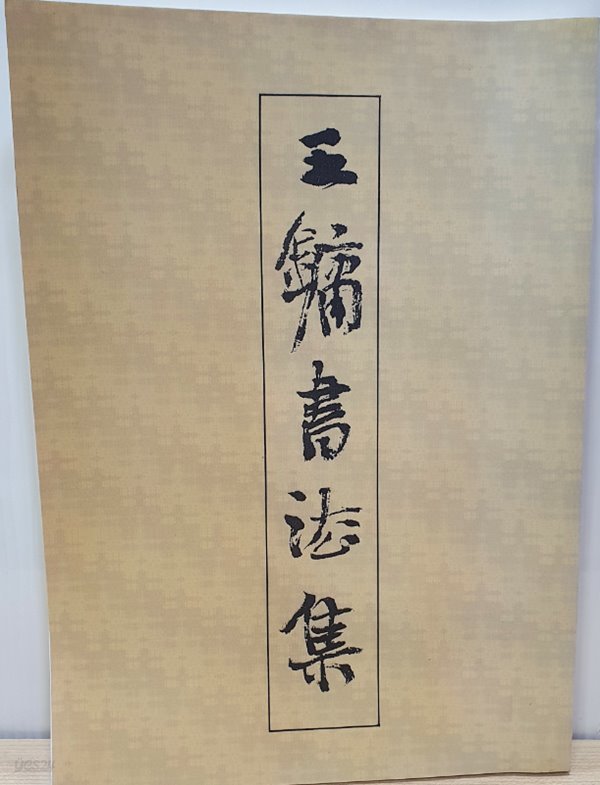 王鏞書法集
yes24